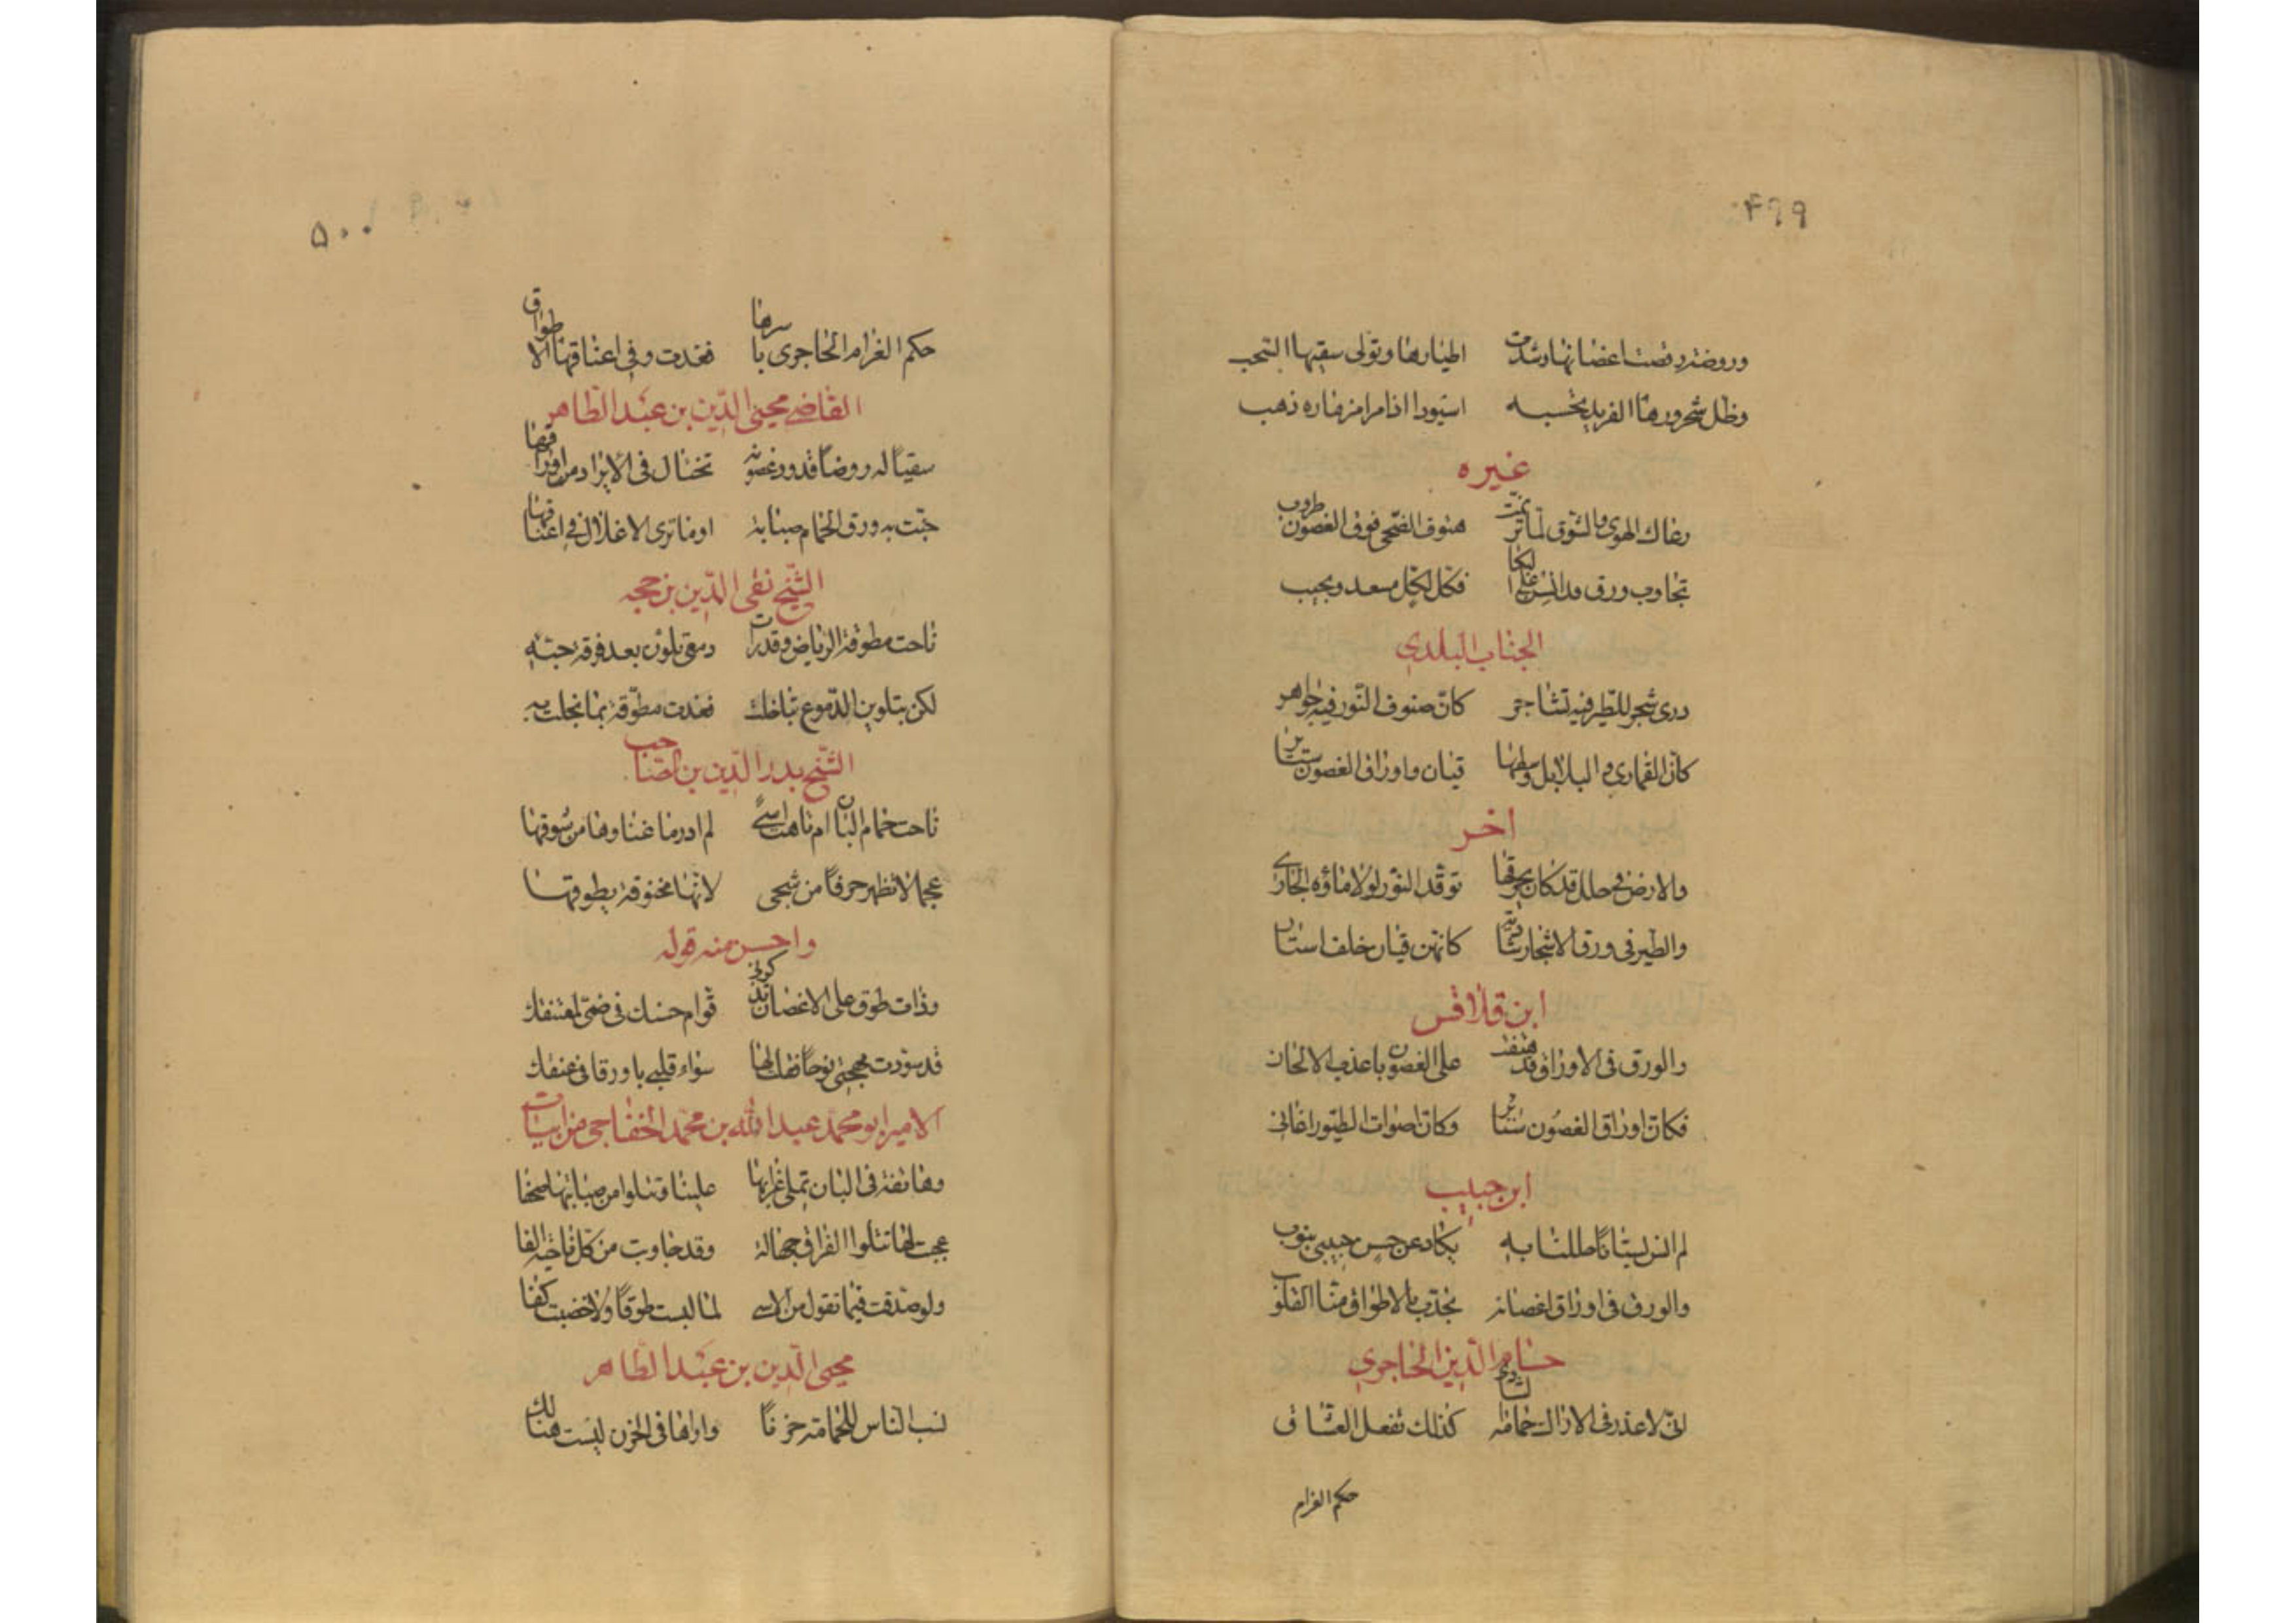 ۴۹۹
وروضة رقصت اغصانها وشدت اطيارها وتولى سقيها السحب
وظل شحرورها الغريد تحسبه اسيودا زامرا مزماره ذهب
غيره
رعاك الهوى والشوق لما ترنمت هتوف الضحى فوق الغصون طروب
تجاوب ورق على البكا فكل لكل مسعد ومجيب
الجناب البلدى
ذرى شجر للطير فيه تشاجر كان صنوف النور فيه جواهر
كان القمارى والبلابل وسطها قيان واوراق الغصون ستاير
اخر
والارض فى حلل قد كاد يحرقها توقد النور لولا ماؤه الجارى
والطير فى ورق الاشجار شادية كانهن قيان خلف استار
ابن قلاقس
والورق فى الاوراق قد هتفت على الغصون باعذب الالحان
فكان اوراق الغصون ستاير وكان اصوات الطيور اغانى
ابن حبيب
لم انس بستانا طللنا به يكاد عن حسن حبيبى ينوب
والورق فى اوراق اغصانه تجذب بالاطواق منا القلوب
حسام الدين الحاجرى
انى لاعذر فى الاراك حمامه الشادى كذلك تفعل العشاق
حكم الغرام
۵۰۰
حكم الغرام الحاجرى باسرها فغدت وفى اعناقها الاطواق
القاضى محيى الدين بن عبد الظاهر
سقيا له روضا قدود غصونه تختال فى الابراد من اوراقها
جنت به ورق الحمام صبابة او ما ترى الاغلال فى اعناقها
الشيخ تقى الدين بن حجه
ناحت مطوقة الرياض وقد رات دمعى تلون بعد فرقة حبه
لكن بتلوين الدموع تباخلت فغدت مطوقة بما بخلت به
الشيخ بدر الدين بن الصاحب
ناحت حمام البان ام ناهت اسى لم ادر ما غناوها من شوقها
عجماء لا تظهر حرفا من شجى لانها مخنوقة بطوقها
واحسن منه قوله
وذات طوق على الاغصان تذكرنى قوام حسنك فى ضمى لمعتنقك
قد سودت مهجتى نوحا فقلت لها سواد قلبى يا ورقا فى عنقك
الامير ابو محمد عبد الله بن محمد الخفاجى من ابيات
وهاتفة فى البان تملى غرامها علينا وتتلوا من صبابتها صحفا
عجبت لها تتلوا الفراق جهالة وقد جاوبت من كل ناحية الفا
ولو صدقت فيما تقول من الاسى لما لبست طوقا ولا خضبت كفا
محيى الدين بن عبد الظاهر
نسب الناس للحمامة حزنا واراها فى الحزن ليست هنالك